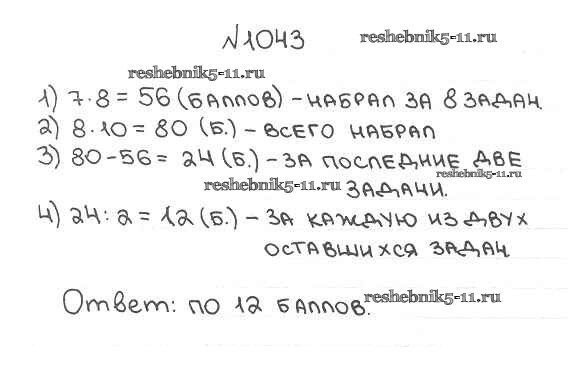 №1043 reshebnik5-11.ru
reshebnik5-11.ru
1) 7·8 = 56 (БАЛЛОВ) – НАБРАЛ ЗА 8 ЗАДАЧ.
2) 8·10 = 80 (Б.) – ВСЕГО НАБРАЛ
3) 80 – 56 = 24 (Б.) – ЗА ПОСЛЕДНИЕ ДВЕ
reshebnik5-11.ru
reshebnik5-11.ru ЗАДАЧИ.
4) 24 : 2 = 12 (Б.) – ЗА КАЖДУЮ ИЗ ДВУХ
ОСТАВШИХСЯ ЗАДАЧ
Ответ: ПО 12 БАЛЛОВ. reshebnik5-11.ru